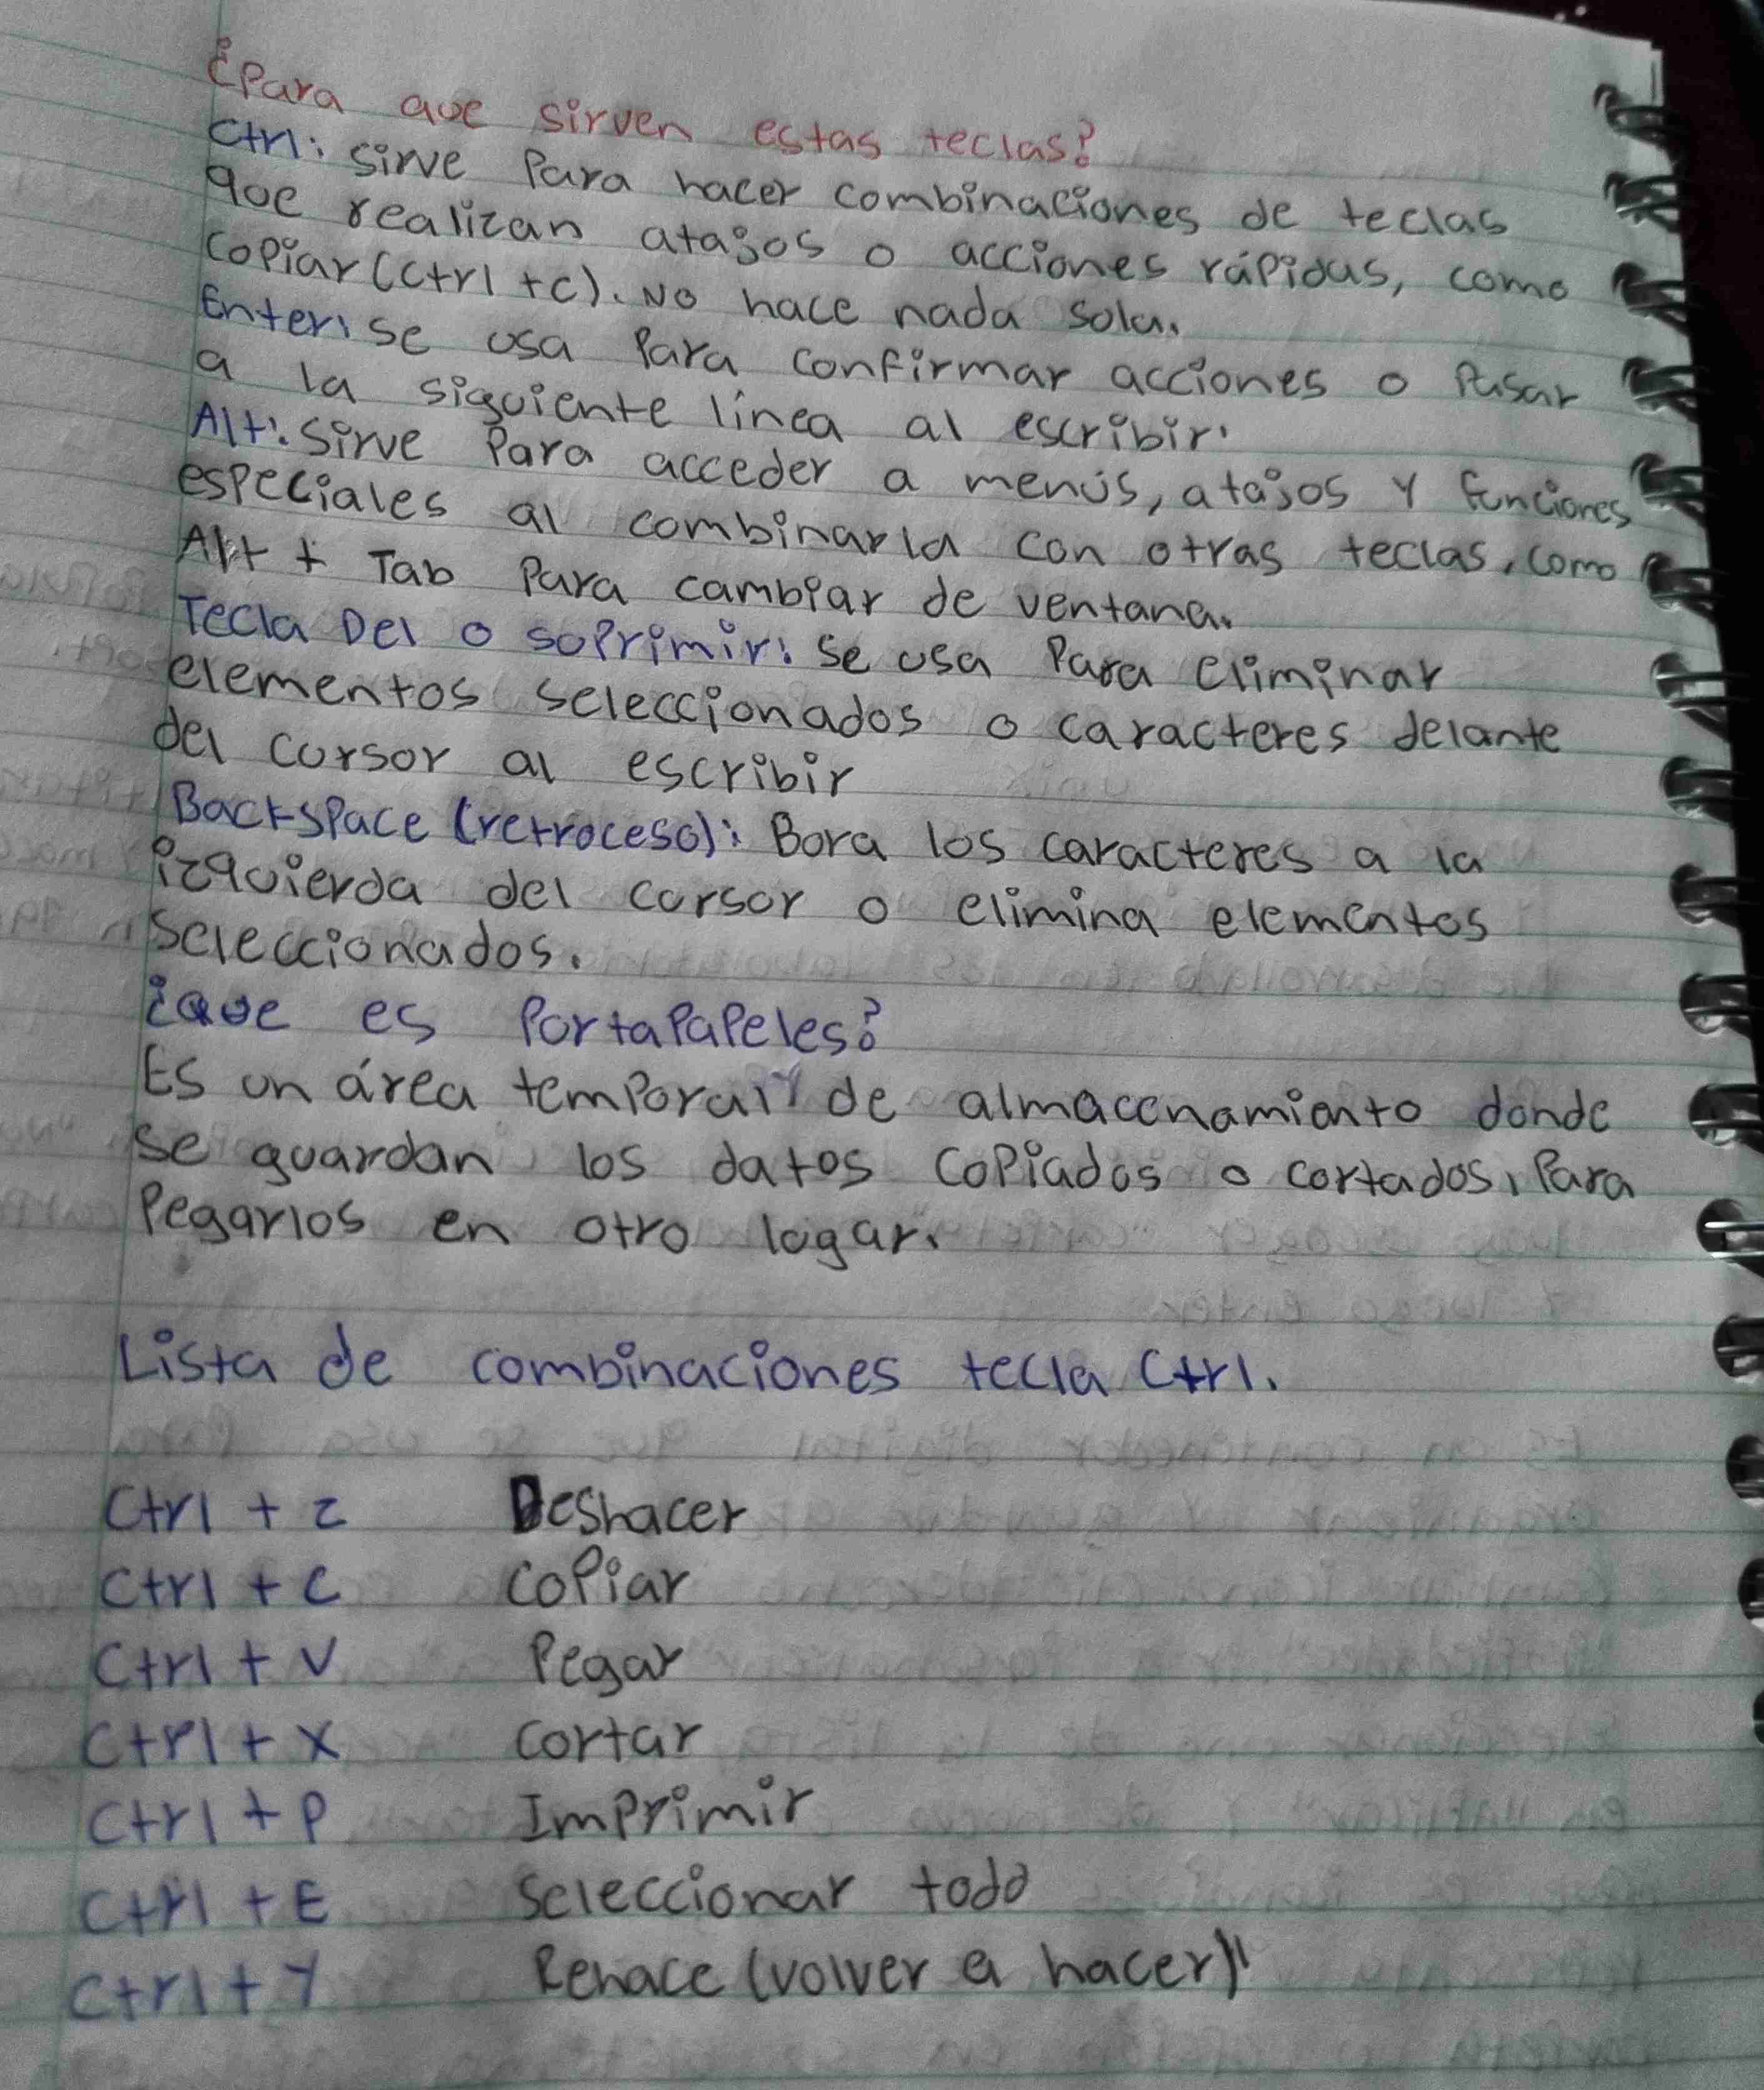 ¿Para que sirven estas teclas?
Ctrl: sirve Para hacer combinaciones de teclas
que realizan atajos o acciones rápidas, como
copiar (ctrl + c). No hace nada sola.
Enter: se usa Para confirmar acciones o Pasar
a la siguiente línea al escribir.
Alt: Sirve Para acceder a menús, atajos y funciones
especiales al combinarla con otras teclas, como
Alt + Tab Para cambiar de ventana.
Tecla Del o suprimir: se usa Para eliminar
elementos seleccionados o caracteres delante
del cursor al escribir
Backspace (retroceso): Bora los caracteres a la
izquierda del cursor o elimina elementos
seleccionados.
¿que es Portapapeles?
Es un área temporal de almacenamiento donde
se guardan los datos copiados o cortados, Para
Pegarlos en otro lugar.
Lista de combinaciones tecla Ctrl.
Ctrl + z Deshacer
Ctrl + c copiar
Ctrl + v Pegar
Ctrl + x cortar
Ctrl + P Imprimir
Ctrl + E seleccionar todo
Ctrl + y Rehace (volver a hacer)"